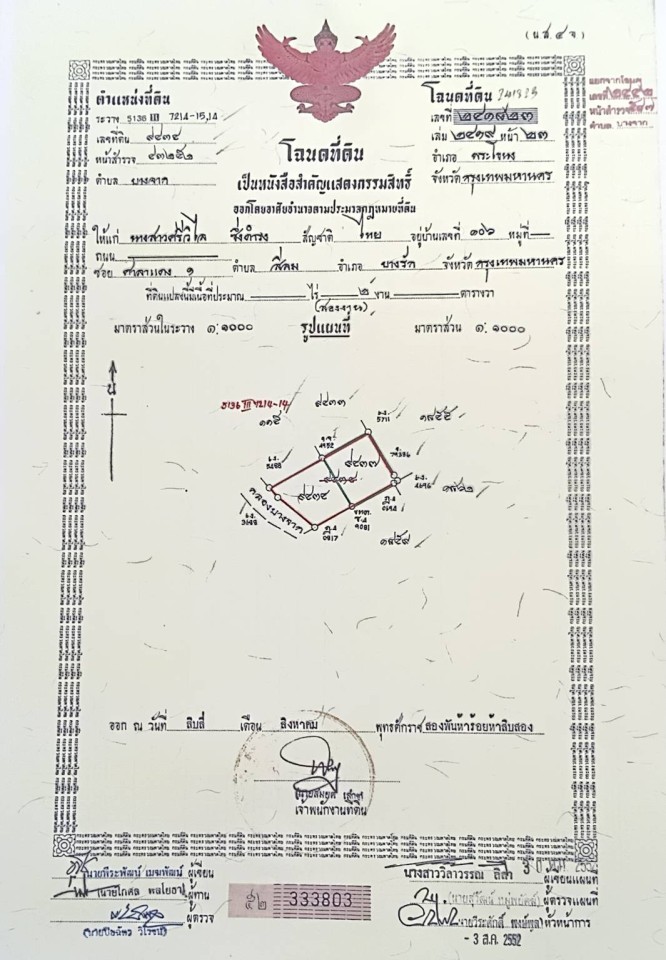 (น.ส.๔ จ)
ตำแหน่งที่ดิน
ระวาง 5136 III 7214-15,14
เลขที่ดิน ๙๔๓๔
หน้าสำรวจ ๔๓๒๕๖
ตำบล บางจาก
โฉนดที่ดิน
เลขที่ ๒๔๑๘๒๓
เล่ม ๒๔๑๙ หน้า ๒๓
อำเภอ พระโขนง
จังหวัด กรุงเทพมหานคร
แยกจากโฉนด
หน้าสำรวจ
ตำบล บางจาก
โฉนดที่ดิน
เป็นหนังสือสำคัญแสดงกรรมสิทธิ์
ออกโดยอาศัยอำนาจตามประมวลกฎหมายที่ดิน
ให้แก่ นางสาวศรีวิไล สัญชาติ ไทย อยู่บ้านเลขที่ ๑๐๖ หมู่ที่
ถนน
ซอย ศาลาแดง ๑ ตำบล สีลม อำเภอ บางรัก จังหวัด กรุงเทพมหานคร
ที่ดินแปลงนี้มีเนื้อที่ประมาณ ไร่ ๒ งาน ตารางวา
(สองงาน)
มาตราส่วนในระวาง ๑:๑๐๐๐ รูปแผนที่ มาตราส่วน ๑:๑๐๐๐
น
5136 III 7214-14
๙๔๓๓
๑๑๕
5711
๑๔๕๕
4952
๙๔๓๗
5488
๙๔๓๔
๙๔๓๔
4696
0694
คลองบางจาก
9081
3488
0917
๑๔๕๙
ออก ณ วันที่ สิบสี่ เดือน สิงหาคม พุทธศักราช สองพันห้าร้อยห้าสิบสอง
เจ้าพนักงานที่ดิน
นายพีระพัฒน์ เมฆพัฒน์ ผู้เขียน
(นายโกศล พลโยธา) ผู้ทาน
ผู้ตรวจ
๕๒ 333803
นางสาววิลาวรรณ ลีลา ผู้เขียนแผนที่
ผู้ตรวจแผนที่
นายวีระศักดิ์ พงษ์พูล หัวหน้าการ
- 3 ส.ค. 2552